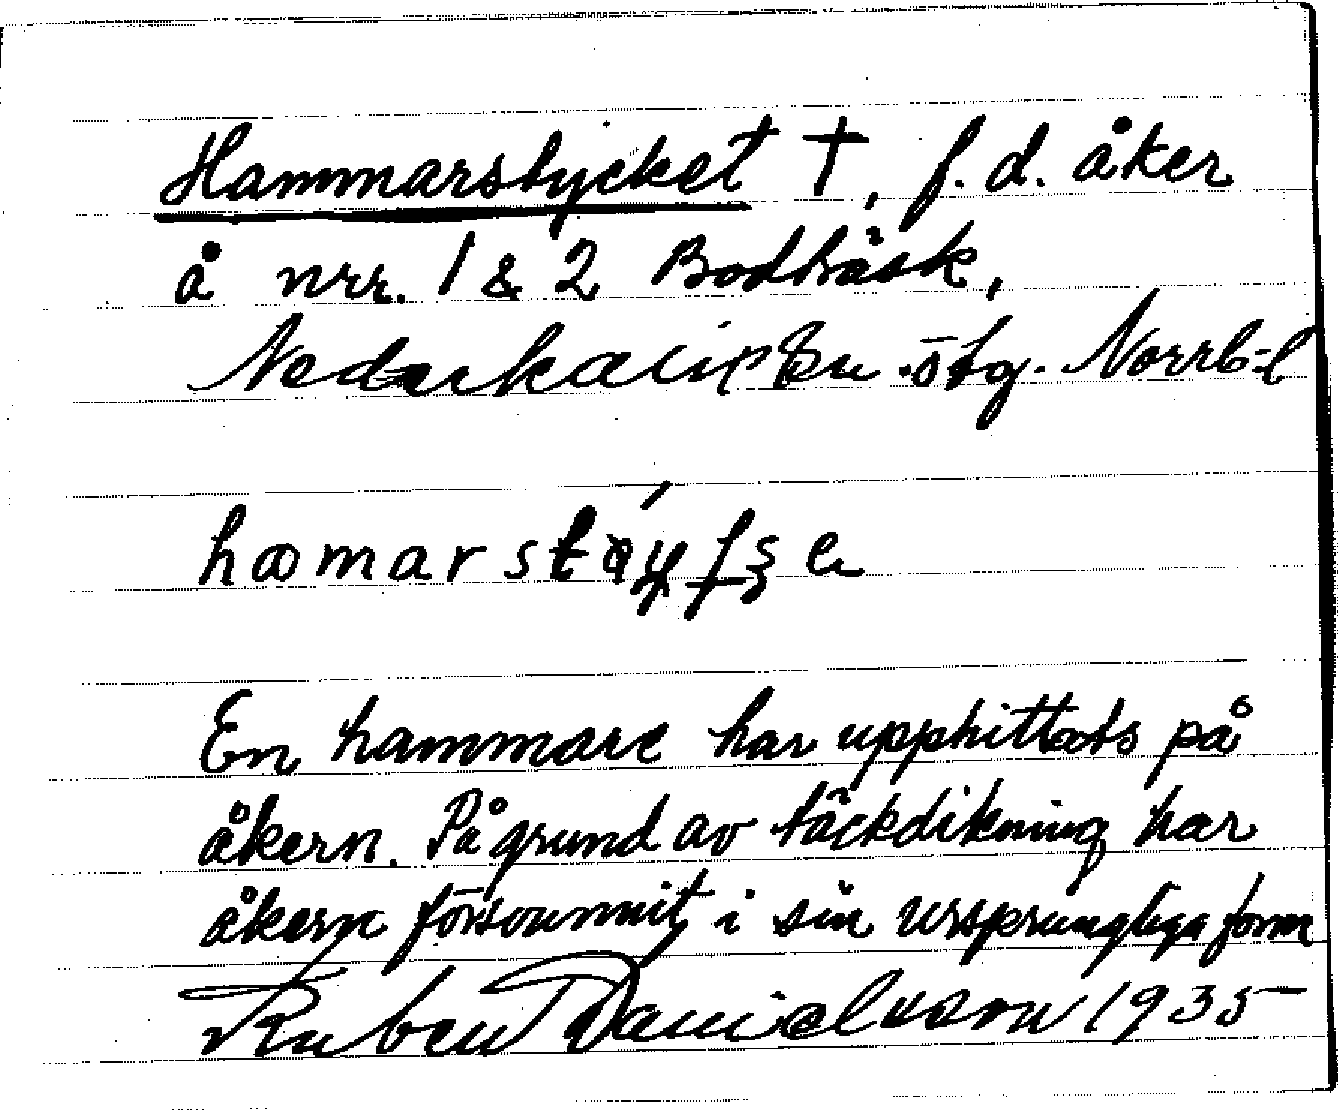 Hammarstycket †, f.d. åker
å nrr. 1 & 2 Bodträsk,
Nederkalix sn. ötg. Norrb-l
hamarst
En hammare har upphittats på
åkern. På grund av täckdikning har
åkern försvunnit i sin ursprungliga form
Ruben Danielsson 1935